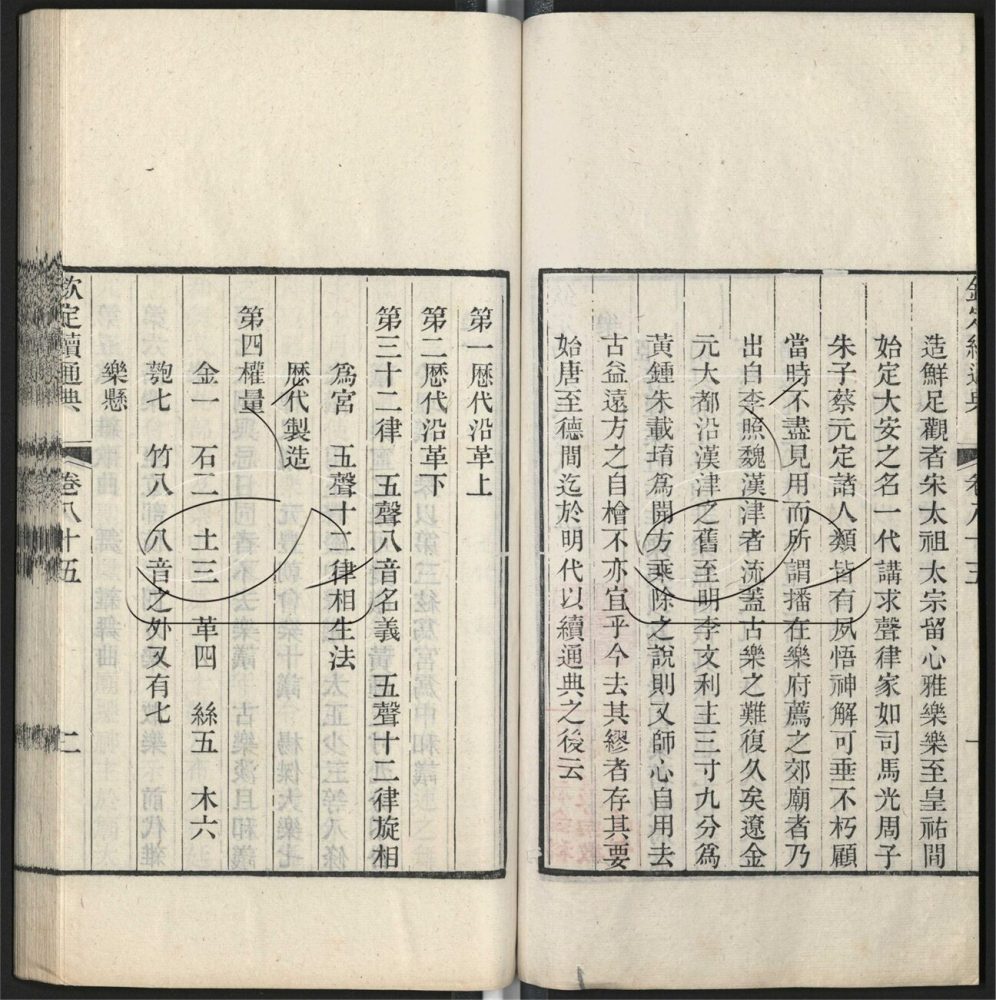 造鮮足觀者宋太祖太宗留心雅樂樂至皇祐間
始定大安之名一代講求聲律家如司馬光周子
朱子蔡元定諸人類皆有夙悟神解可垂不朽顧
當時不盡見用而所謂播在樂府薦之郊廟者乃
出自李照魏漢津者流蓋古樂之難復久矣遼金
元大都沿漢津之舊至明李文利主三寸九分為
黃鍾朱載堉為開方乘除之說則又師心自用去
古益遠方之自檜不亦宜乎今去其繆者存其要
始唐至德間迄於明代以續通典之後云
第一歷代沿革上
第二歷代沿革下
第三十二律 五聲八音名義 五聲十二律旋相
為宮 五聲十二律相生法
歷代製造
第四權量
金一 石二 土三 革四 絲五 木六
匏七 竹八 八音之外又有七
樂懸
欽定續通典 卷八十五 二